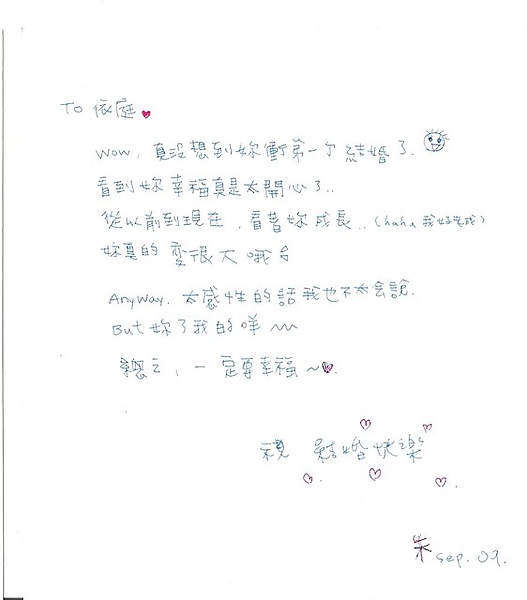 To 依庭
Wow, 真沒想到妳衝第一ㄉ結婚了.
看到妳幸福真是太開心了..
從以前到現在, 看著妳成長.. (haha 我好老成)
妳真的變很大哦台
AnyWay. 太感性的話我也不太会説.
But 妳了我的咩~~
總之, 一定要幸福~
祝 結婚快樂
朱 Sep. 09.